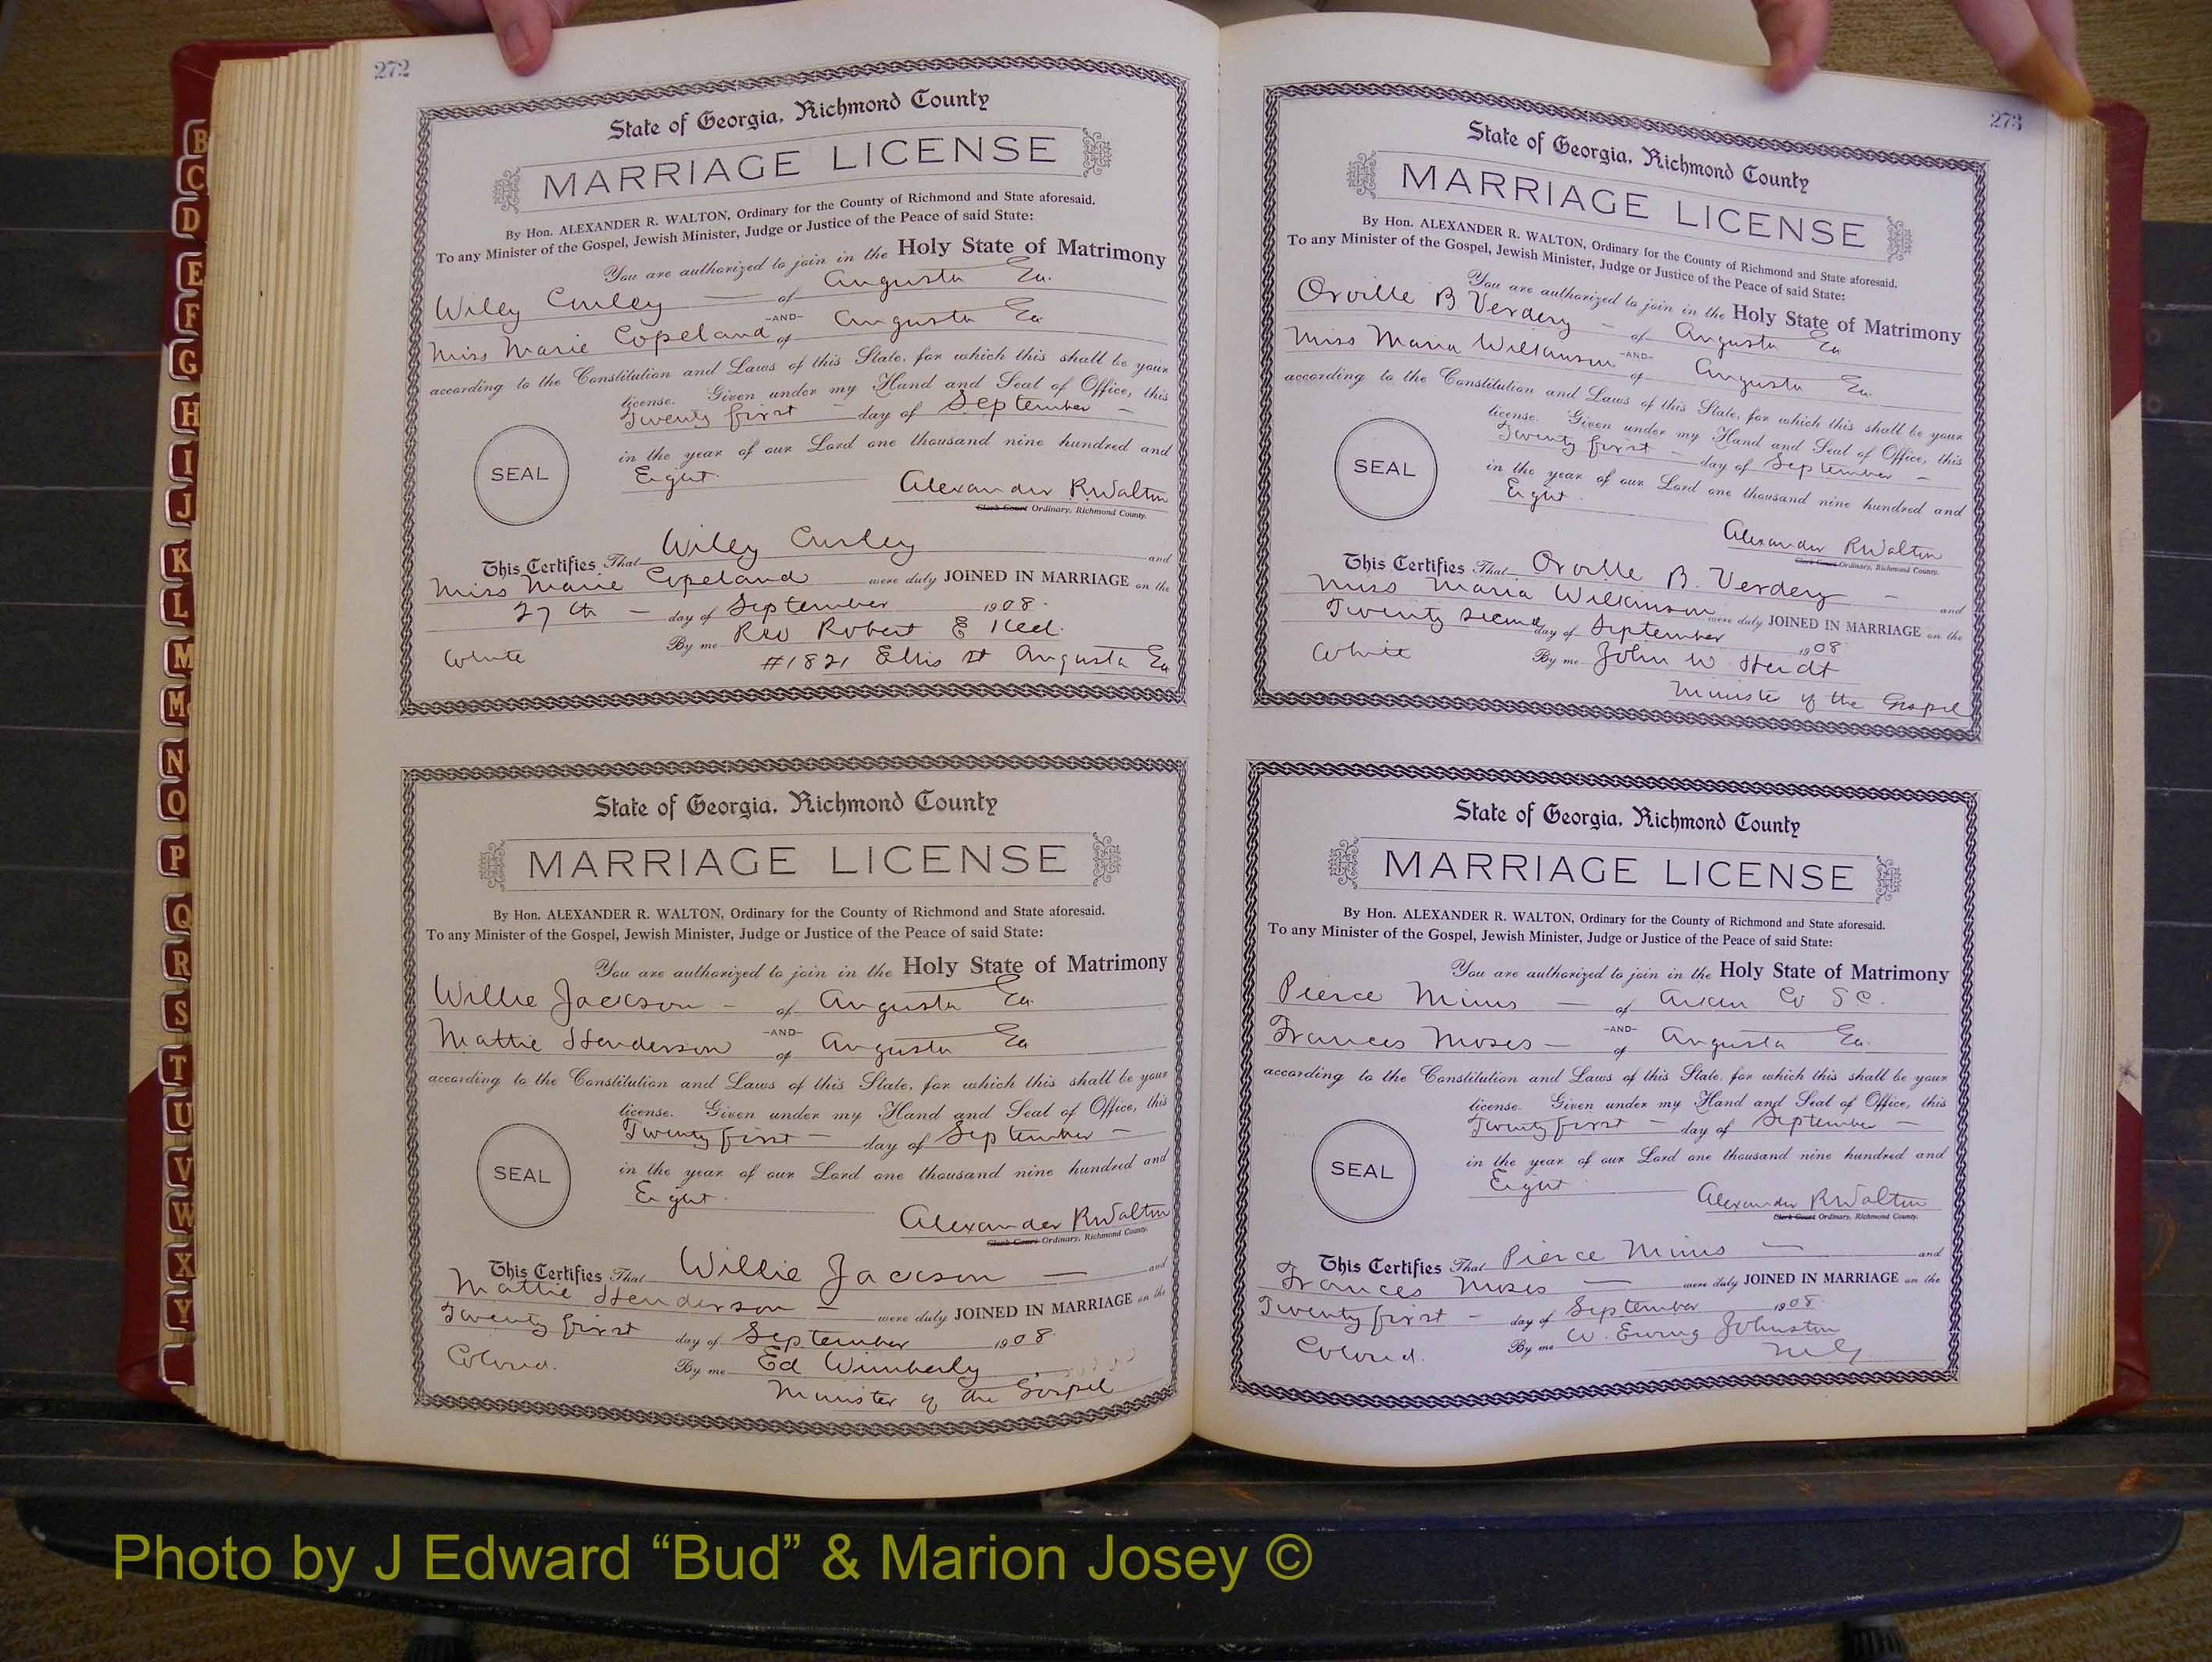 272
State of Georgia, Richmond County
MARRIAGE LICENSE
By Hon. ALEXANDER R. WALTON, Ordinary for the County of Richmond and State aforesaid.
To any Minister of the Gospel, Jewish Minister, Judge or Justice of the Peace of said State:
You are authorized to join in the Holy State of Matrimony
Wiley Curley — of Augusta Ga.
-AND-
Miss Marie Copeland of Augusta Ga
according to the Constitution and Laws of this State, for which this shall be your
license. Given under my Hand and Seal of Office, this
Twenty first — day of September —
in the year of our Lord one thousand nine hundred and
SEAL
Eight.
Alexander R Walton
Clerk Court Ordinary, Richmond County.
This Certifies That Wiley Curley and
Miss Marie Copeland were duly JOINED IN MARRIAGE on the
27th — day of September 1908.
By me Rev Robert E
White #1821 Ellis St Augusta Ga
State of Georgia, Richmond County
MARRIAGE LICENSE
By Hon. ALEXANDER R. WALTON, Ordinary for the County of Richmond and State aforesaid.
To any Minister of the Gospel, Jewish Minister, Judge or Justice of the Peace of said State:
You are authorized to join in the Holy State of Matrimony
Willie Jackson — of Augusta Ga.
-AND-
Mattie Henderson of Augusta Ga
according to the Constitution and Laws of this State, for which this shall be your
license. Given under my Hand and Seal of Office, this
Twenty first — day of September —
in the year of our Lord one thousand nine hundred and
SEAL
Eight.
Alexander R Walton
Clerk Court Ordinary, Richmond County.
This Certifies That Willie Jackson — and
Mattie Henderson — were duly JOINED IN MARRIAGE on the
Twenty first day of September 1908.
Colored. By me Ed Wimberly
Minister of the Gospel
273
State of Georgia, Richmond County
MARRIAGE LICENSE
By Hon. ALEXANDER R. WALTON, Ordinary for the County of Richmond and State aforesaid.
To any Minister of the Gospel, Jewish Minister, Judge or Justice of the Peace of said State:
You are authorized to join in the Holy State of Matrimony
Orville B Verdery — of Augusta Ga
-AND-
Miss Maria Wilkinson of Augusta Ga.
according to the Constitution and Laws of this State, for which this shall be your
license. Given under my Hand and Seal of Office, this
Twenty first — day of September —
in the year of our Lord one thousand nine hundred and
SEAL
Eight.
Alexander R Walton
Clerk Court Ordinary, Richmond County.
This Certifies That Orville B. Verdery — and
Miss Maria Wilkinson were duly JOINED IN MARRIAGE on the
Twenty second day of September 1908
White By me John W
Minister of the Gospel
State of Georgia, Richmond County
MARRIAGE LICENSE
By Hon. ALEXANDER R. WALTON, Ordinary for the County of Richmond and State aforesaid.
To any Minister of the Gospel, Jewish Minister, Judge or Justice of the Peace of said State:
You are authorized to join in the Holy State of Matrimony
Pierce Mims — of Aiken Co S C.
-AND-
Frances Moses — of Augusta Ga.
according to the Constitution and Laws of this State, for which this shall be your
license. Given under my Hand and Seal of Office, this
Twenty first — day of September —
in the year of our Lord one thousand nine hundred and
SEAL
Eight.
Alexander R Walton
Clerk Court Ordinary, Richmond County.
This Certifies That Pierce Mims — and
Frances Moses — were duly JOINED IN MARRIAGE on the
Twenty first — day of September 1908.
Colored. By me W. Ewing Johnston
B
C
D
E
F
G
H
I
J
K
L
M
Mc
N
O
P
Q
R
S
T
U
V
W
X
Y
Photo by J Edward “Bud” & Marion Josey ©